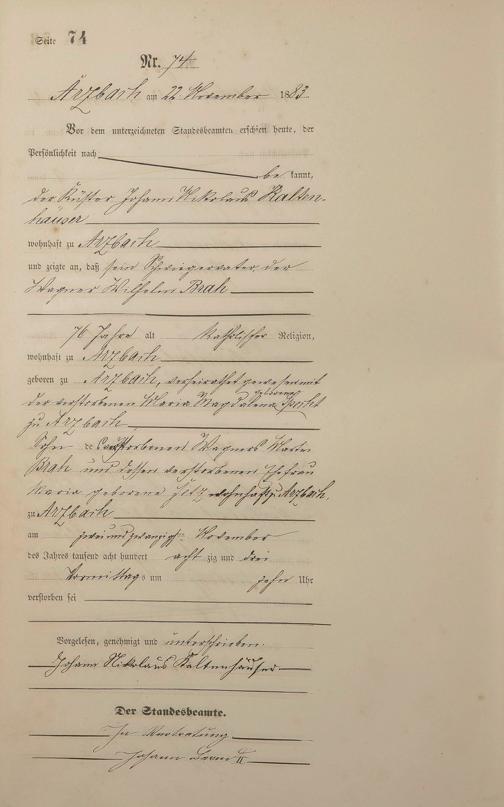 Seite 74
Nr. 74
Arzbach am 22 November 1883
Vor dem unterzeichneten Standesbeamten erschien heute, der
Persönlichkeit nach
be kannt,
der Küster Johann Nikolaus Kalten-
häuser
wohnhaft zu Arzbach
und zeigte an, daß sein Schwiegervater, der
Wagner Wilhelm Brah
76 Jahre alt katholischer Religion,
wohnhaft zu Arzbach
geboren zu Arzbach, verheirathet gewesen mit
der verstorbenen Maria Magdalena geborene
zu Arzbach
Sohn des verstorbenen Wagners
Brah und dessen verstorbenen Ehefrau
Maria geborene wohnhaft zu Arzbach,
zu Arzbach
am zweiundzwanzigsten November
des Jahres tausend acht hundert acht zig und drei
Vormittags um zehn Uhr
verstorben sei
Vorgelesen, genehmigt und unterschrieben.
Johann Nikolaus Kaltenhäuser
Der Standesbeamte.
In Vertretung
Johann II